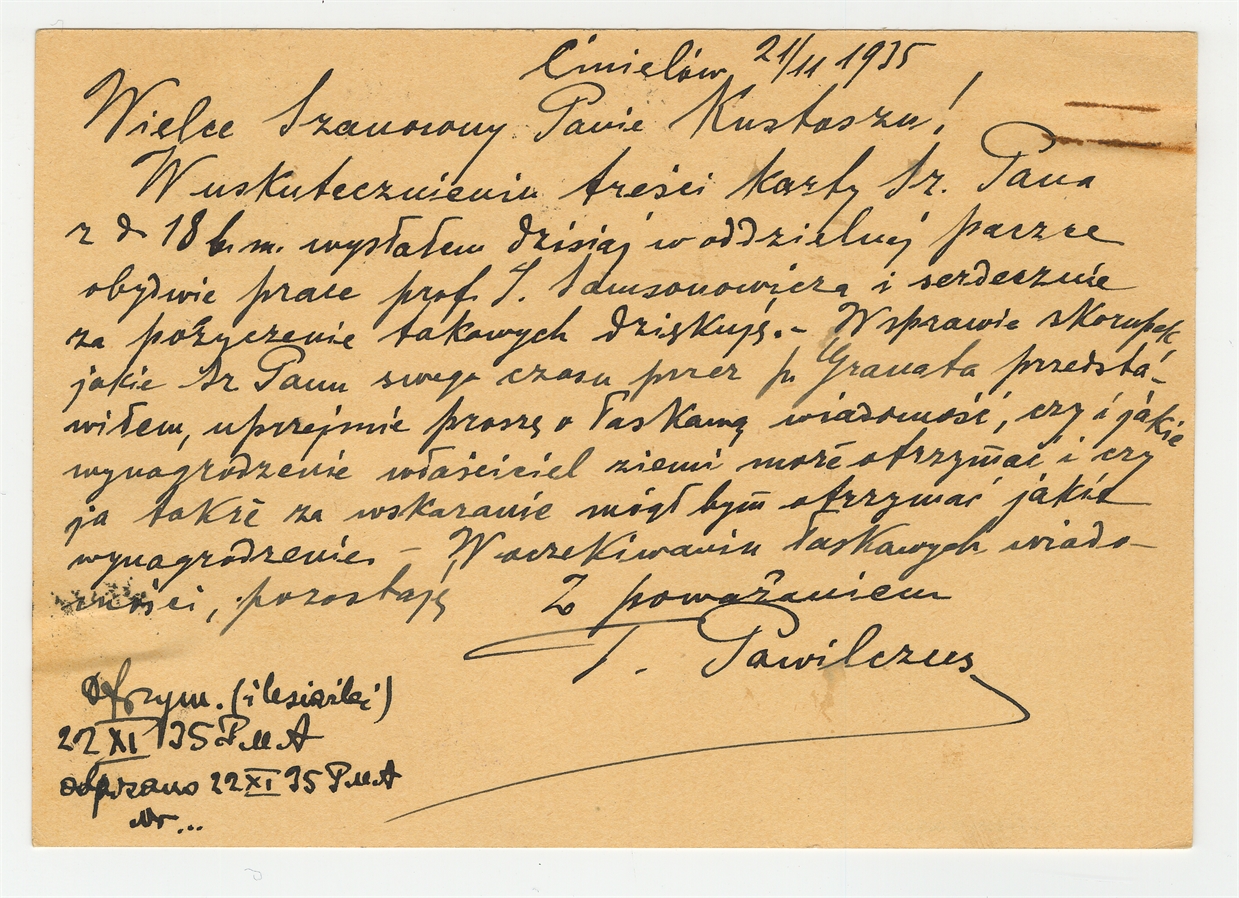 Ćmielów 21/11 1935
Wielce Szanowny Panie Kustoszu!
W uskutecznieniu treści karty Sz. Pana
z d. 18 b. m. wysłałem dzisiaj w oddzielnej paczce
obydwie prace prof. J. Samsonowicza i serdecznie
za pożyczenie takowych dziękuję. – W sprawie skorupek
jakie Sz Panu swego czasu przez p. Granata przedsta-
wiłem, uprzejmie proszę o łaskawą wiadomość, czy i jakie
wynagrodzenie właściciel ziemi może otrzymać i czy
ja także za wskazanie mógł bym otrzymać jakie
wynagrodzenie. – W oczekiwaniu łaskawych wiado-
mości, pozostaję Z poważaniem
T. Pawilczus
Otrzym. (i książki)
22 XI 35 PMA
odpisano 22 XI 35 PMA
Nr ...